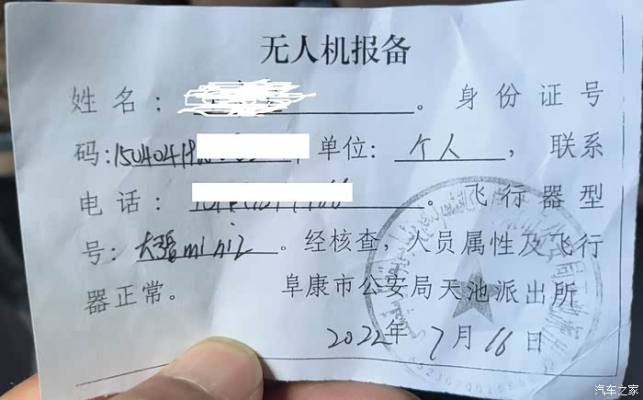 无人机报备
姓名:。身份证号
码:15040419 单位:个人,联系
电话:。飞行器型
号:大疆mini2。经核查,人员属性及飞行
器正常。 阜康市公安局天池派出所
2022年7月16日
汽车之家